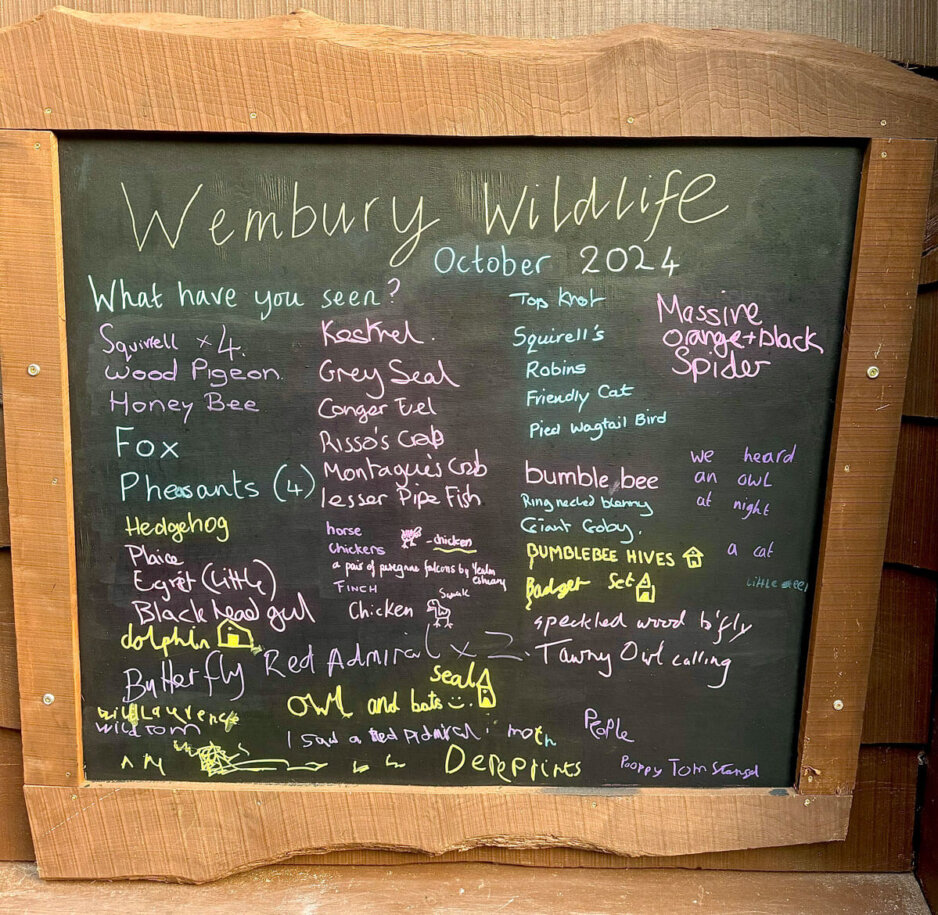 Wembury Wildlife
October 2024
What have you seen?
Squirrell x 4.
Wood Pigeon.
Honey Bee
Fox
Pheasants (4)
Hedgehog
Plaice
Egret (Little)
Black head gul
dolphin
Butterfly
Red Admiral x 2.
wild Laurence
wild rom
Kestrel.
Grey Seal
Conger Eel
Risso's Crab
Montague's Crab
lesser Pipe Fish
horse
chickers
- chicken
a pair of peregrine falcons by Yealm estuary
FINCH
Chicken
Swak
seal
OWL and bats
I saw a Red Admiral moth
Top Knot
Squirell's
Robins
Friendly Cat
Pied Wagtail Bird
bumble bee
Ring necked blenny
Giant Goby.
BUMBLEBEE HIVES
Badger Set
speckled wood b'fly
Tawny Owl calling
People
Deerprints
Pooppy Tom
Massive
orange + black
Spider
we heard
an owl
at night
a cat
Little